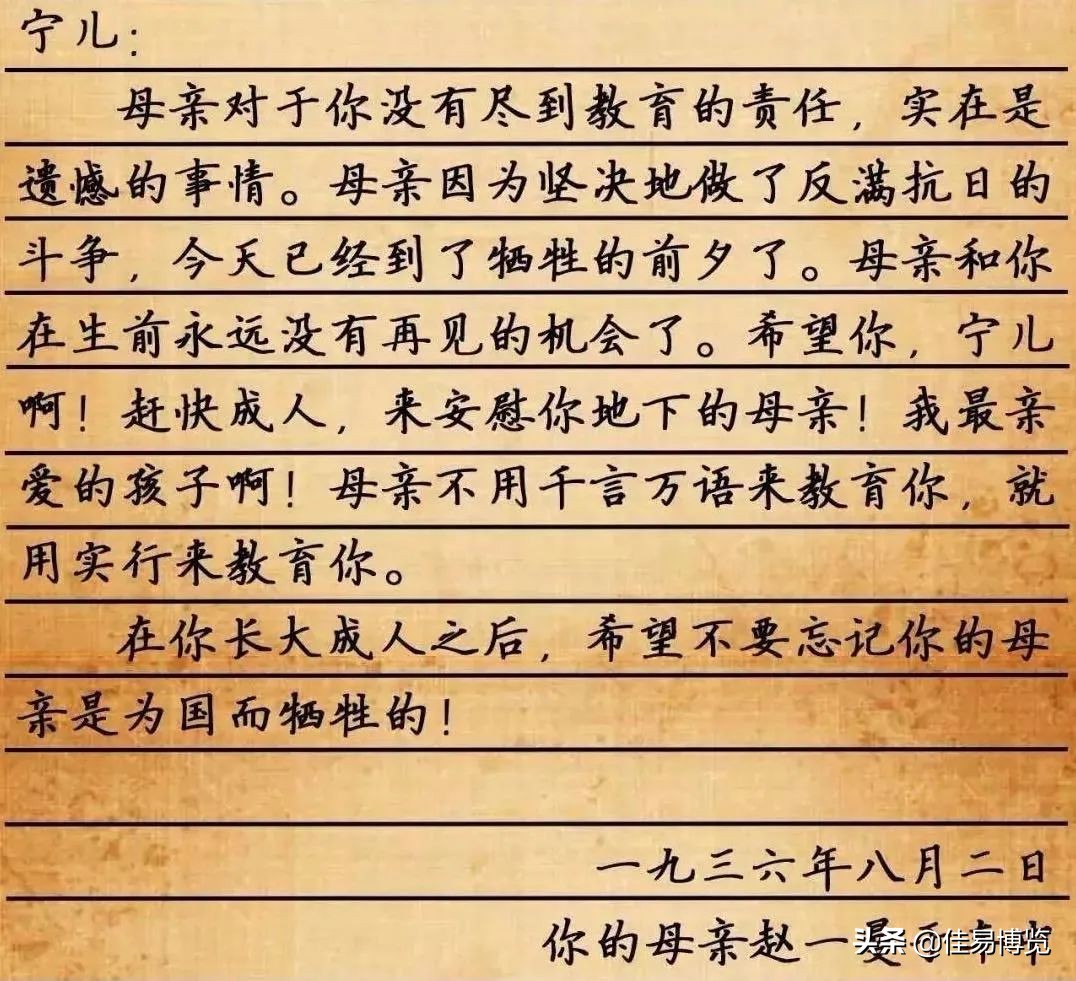 宁儿：
母亲对于你没有尽到教育的责任，实在是
遗憾的事情。母亲因为坚决地做了反满抗日的
斗争，今天已经到了牺牲的前夕了。母亲和你
在生前永远没有再见的机会了。希望你，宁儿
啊！赶快成人，来安慰你地下的母亲！我最亲
爱的孩子啊！母亲不用千言万语来教育你，就
用实行来教育你。
在你长大成人之后，希望不要忘记你的母
亲是为国而牺牲的！
一九三六年八月二日
你的母亲赵一曼
头条 @佳易博览